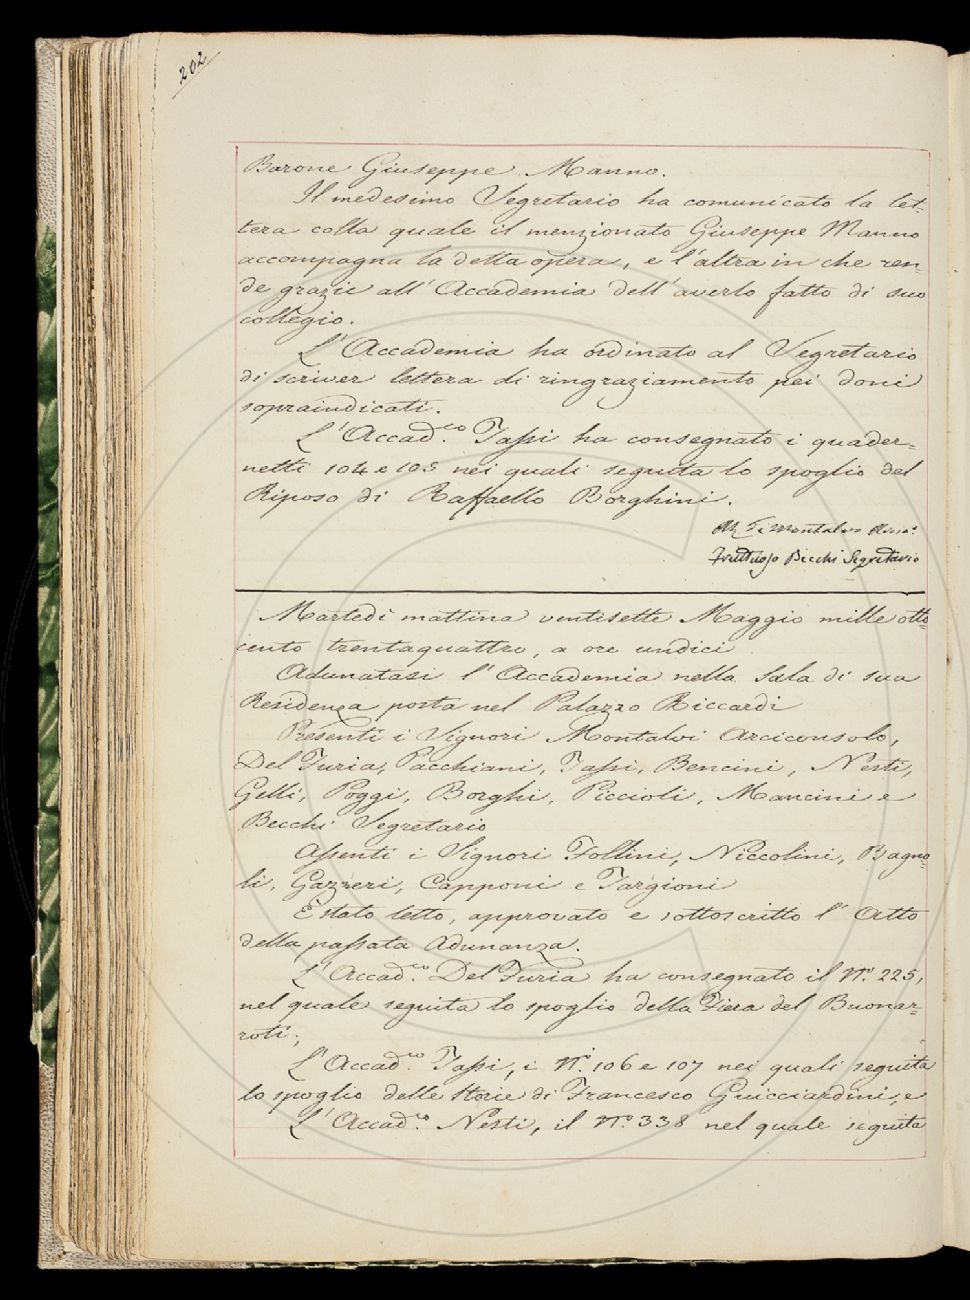 202
Barone Giuseppe Manno.
Il medesimo Segretario ha comunicato la let-
tera colla quale il menzionato Giuseppe Manno
accompagna la detta opera, e l'altra in che ren-
de grazie all'Accademia dell'averlo fatto di suo
collegio.
L'Accademia ha ordinato al Segretario
di scriver lettera di ringraziamento pei doni
sopraindicati.
L'Accad.co Tassi ha consegnato i quader-
netti 104 e 105 nei quali seguita lo spoglio del
Riposo di Raffaello Borghini.
Montalvo
Fruttuoso Becchi Segretario
Martedì mattina ventisette Maggio mille otto
cento trentaquattro, a ore undici
Adunatasi l'Accademia nella Sala di sua
Residenza posta nel Palazzo Riccardi
Presenti i Signori Montalvi Arciconsolo,
Del Furia, Pacchiani, Tassi, Bencini, Nesti,
Gelli, Poggi, Borghi, Piccioli, Mancini e
Becchi Segretario
Assenti i Signori Follini, Niccolini, Bagno-
li, Gazzeri, Capponi e Targioni
È stato letto, approvato e sottoscritto l'Atto
della passata Adunanza.
L'Accad.co Del Furia ha consegnato il N.o 225,
nel quale seguita lo spoglio della Fiera del Buonar-
roti;
L'Accad.co Tassi, i N.i 106 e 107 nei quali seguita
lo spoglio delle Storie di Francesco Guicciardini, e
L'Accad.co Nesti, il N.o 338 nel quale seguita